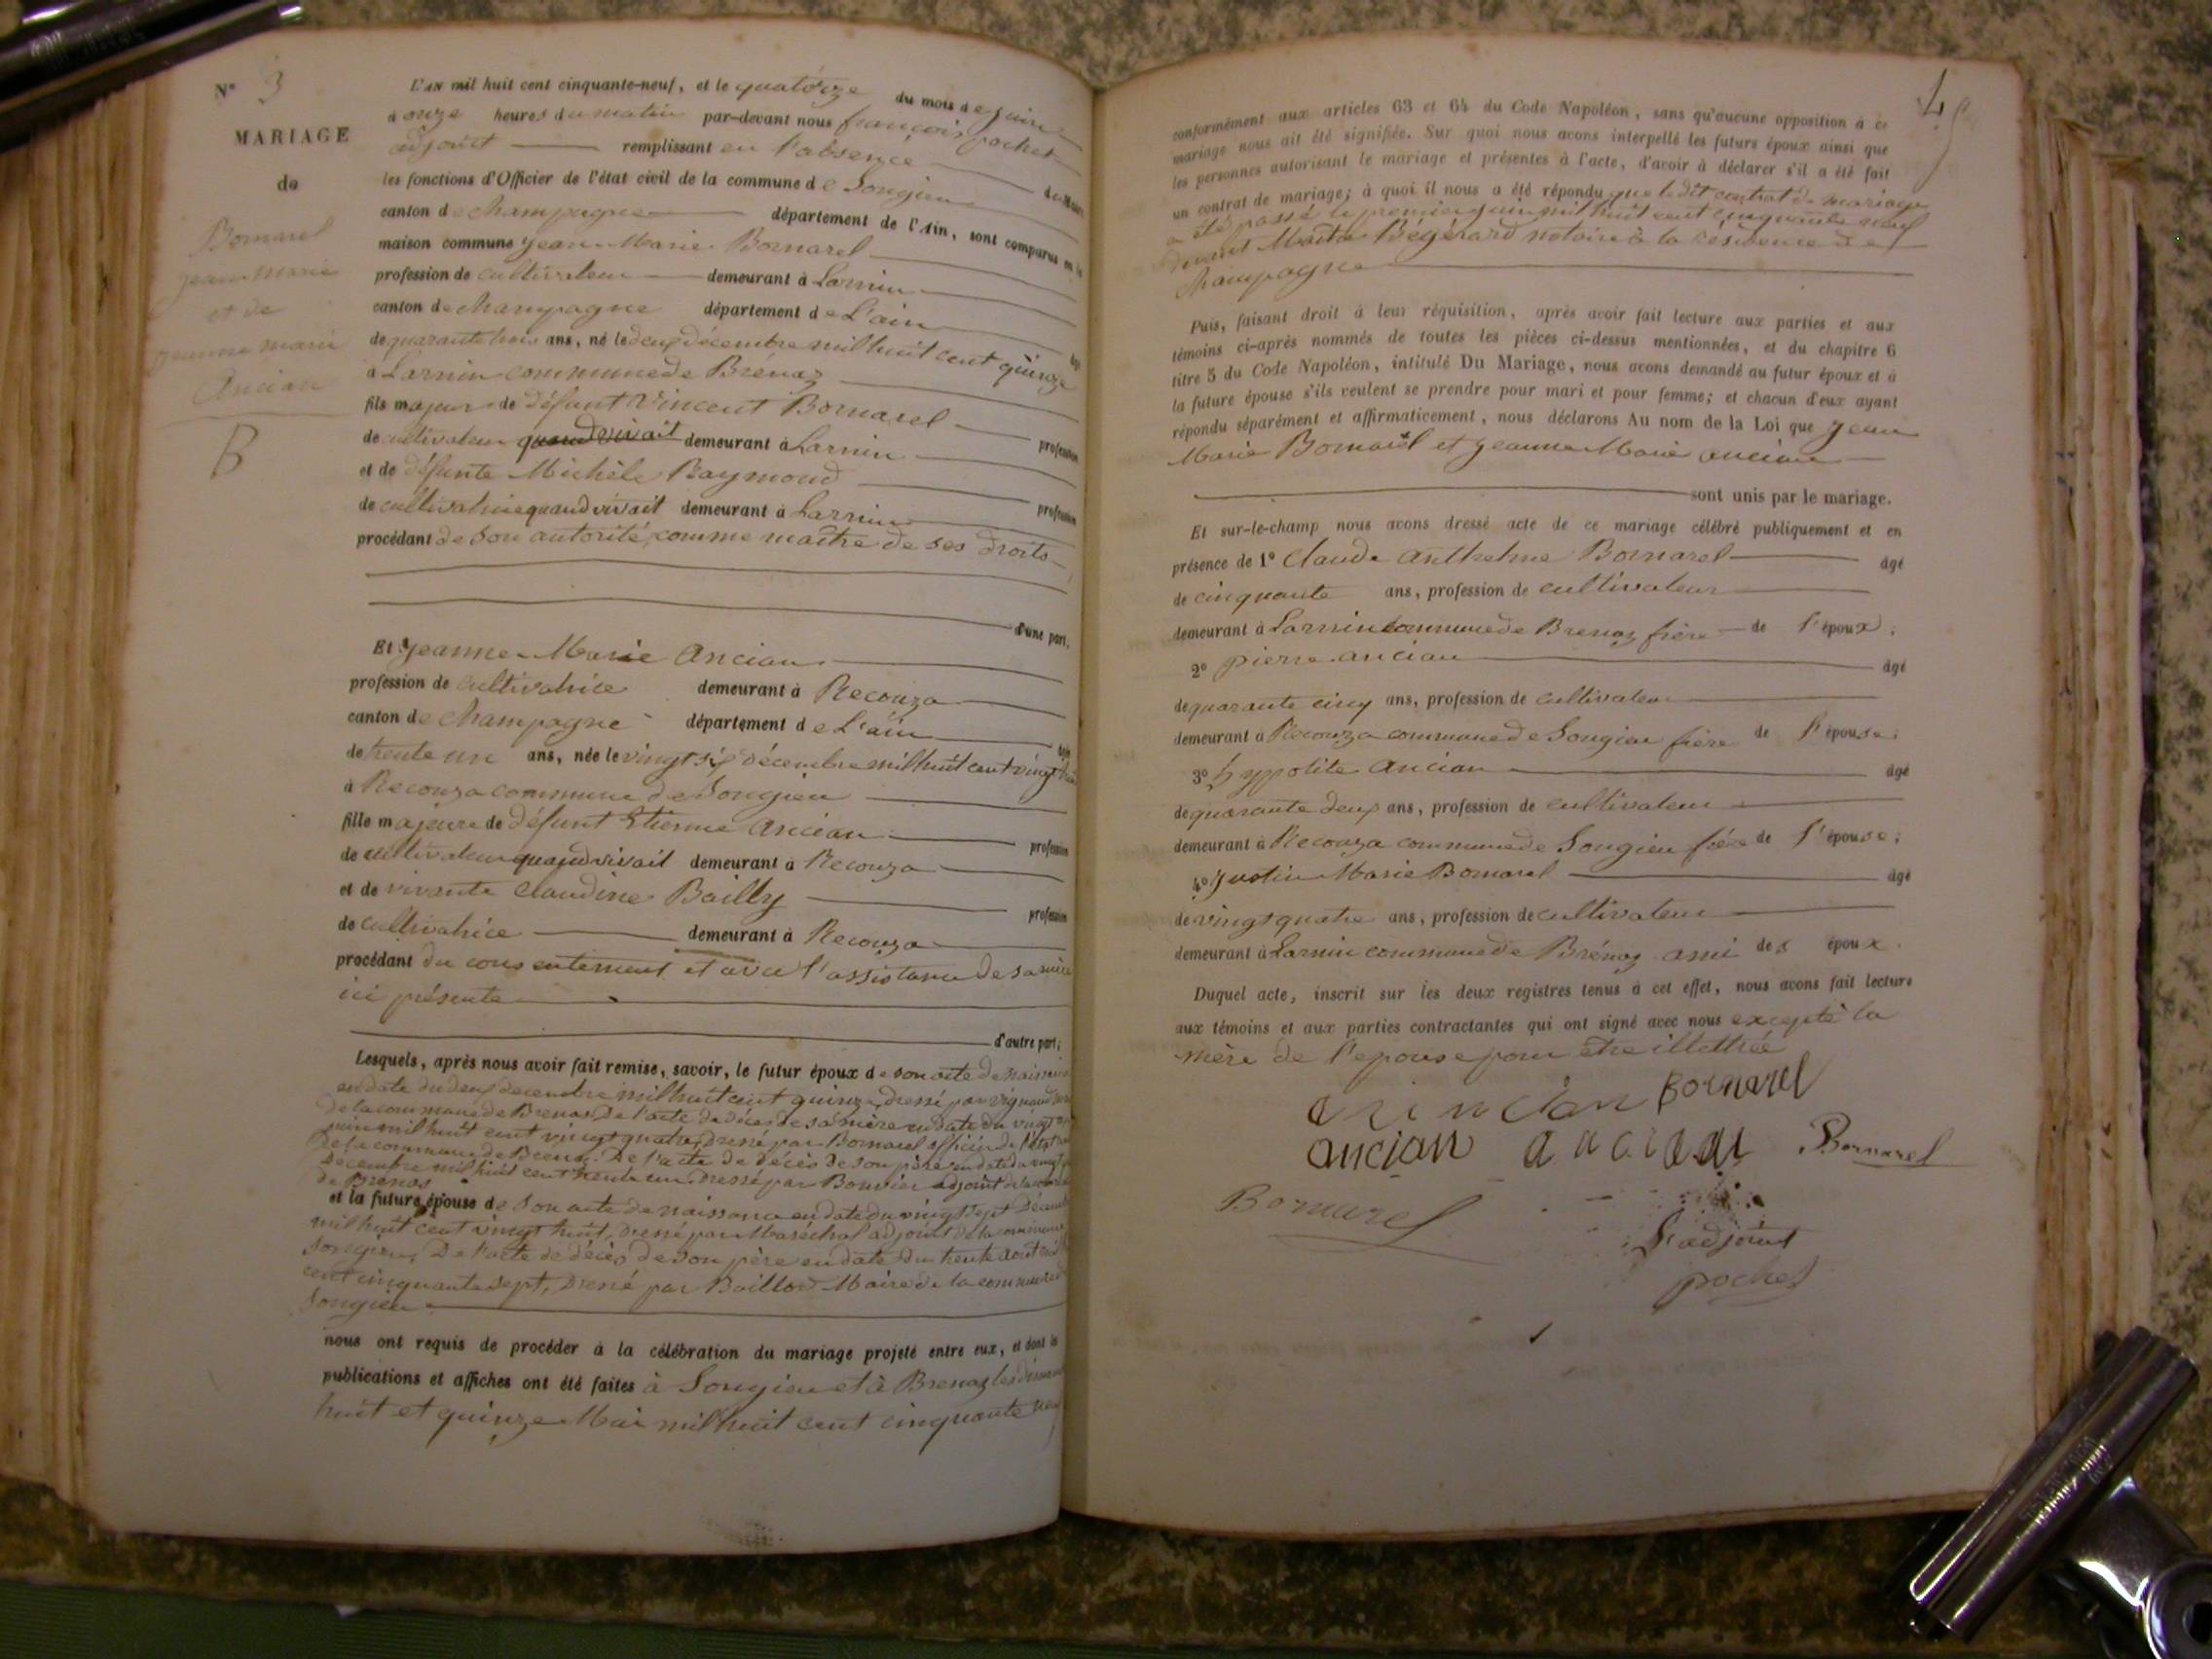 N° 3
MARIAGE
de
Bornarel
jean marie
et de
jeanne marie
Ancian
B
L'AN mil huit cent cinquante-neuf, et le quatorze du mois de juin
à onze heures du matin par-devant nous françois pochet
adjoint remplissant en l'absence du Maire
les fonctions d'Officier de l'état civil de la commune de Songieu
canton de champagne département de l'Ain, sont comparus en la
maison commune jean-Marie Bornarel
profession de cultivateur demeurant à Larnin
canton de champagne département de L'ain
de quarante trois ans, né le deux décembre mil huit cent quinze
à Larnin commune de Brénaz
fils majeur de défunt Vincent Bornarel profession
de cultivateur quand vivait demeurant à Larnin
et de défunte Michèle Raymond profession
de cultivatrice quand vivait demeurant à Larnin
procédant de son autorité comme maître de ses droits
d'une part.
Et jeanne-Marie Ancian
profession de cultivatrice demeurant à Recouza
canton de champagne département de L'ain
de trente un ans, née le vingt six décembre mil huit cent vingt
à Recouza commune de Songieu
fille majeure de défunt Etienne Ancian profession
de cultivateur quand vivait demeurant à Recouza
et de vivante Claudine Bailly profession
de cultivatrice demeurant à Recouza
procédant du consentement et avec l'assistance de sa mère
ici présente
d'autre part;
Lesquels, après nous avoir fait remise, savoir, le futur époux de son acte de naissance
en date du deux décembre mil huit cent quinze, dressé par vignand
de la commune de Brenas. De l'acte de décès de sa mère en date du vingt
juin mil huit cent vingt quatre, dressé par Bornarel officier de l'état
de la commune de Brenaz. De l'acte de décès de son père en date du vingt
décembre mil huit cent trente un dressé par Bouvier adjoint de la
de Brenas
et la future épouse de son acte de naissance en date du vingt sept Décembre
mil huit cent vingt huit, dressé par Maréchal adjoint de la commune
Songieu, De l'acte de décès de son père en date du trente août mil
cent cinquante sept, dressé par Baillod Maire de la commune de
Songieu
nous ont requis de procéder à la célébration du mariage projeté entre eux, et dont les
publications et affiches ont été faites à Songieu et à Brenaz les dimanches
huit et quinze Mai mil huit cent cinquante neuf
4
conformément aux articles 63 et 64 du Code Napoléon, sans qu'aucune opposition à ce
mariage nous ait été signifiée. Sur quoi nous avons interpellé les futurs époux ainsi que
les personnes autorisant le mariage et présentes à l'acte, d'avoir à déclarer s'il a été fait
un contrat de mariage; à quoi il nous a été répondu que ledit contrat de mariage
a été passé le premier juin mil huit cent cinquante neuf
devant Maître Bégérard notaire à la résidence de
Champagne
Puis, faisant droit à leur réquisition, après avoir fait lecture aux parties et aux
témoins ci-après nommés de toutes les pièces ci-dessus mentionnées, et du chapitre 6
titre 5 du Code Napoléon, intitulé Du Mariage, nous avons demandé au futur époux et à
la future épouse s'ils veulent se prendre pour mari et pour femme; et chacun d'eux ayant
répondu séparément et affirmativement, nous déclarons Au nom de la Loi que jean
Marie Bornarel et jeanne Marie ancian
sont unis par le mariage.
Et sur-le-champ nous avons dressé acte de ce mariage célébré publiquement et en
présence de 1° Claude Anthelme Bornarel âgé
de cinquante ans, profession de cultivateur
demeurant à Larnin commune de Brenaz frère de l'époux;
2° pierre ancian âgé
de quarante cinq ans, profession de cultivateur
demeurant à Recouza commune de Songieu frère de l'épouse;
3° hyppolite Ancian âgé
de quarante deux ans, profession de cultivateur
demeurant à Recouza commune de Songieu frère de l'épouse;
4° Justin Marie Bornarel âgé
de vingt quatre ans, profession de cultivateur
demeurant à Larnin commune de Brénaz ami des époux.
Duquel acte, inscrit sur les deux registres tenus à cet effet, nous avons fait lecture
aux témoins et aux parties contractantes qui ont signé avec nous excepté la
mère de l'epouse pour être illettrée
ancian Bornarel
ancian ancian Bornarel
Bornarel
L'adjoint
pochet